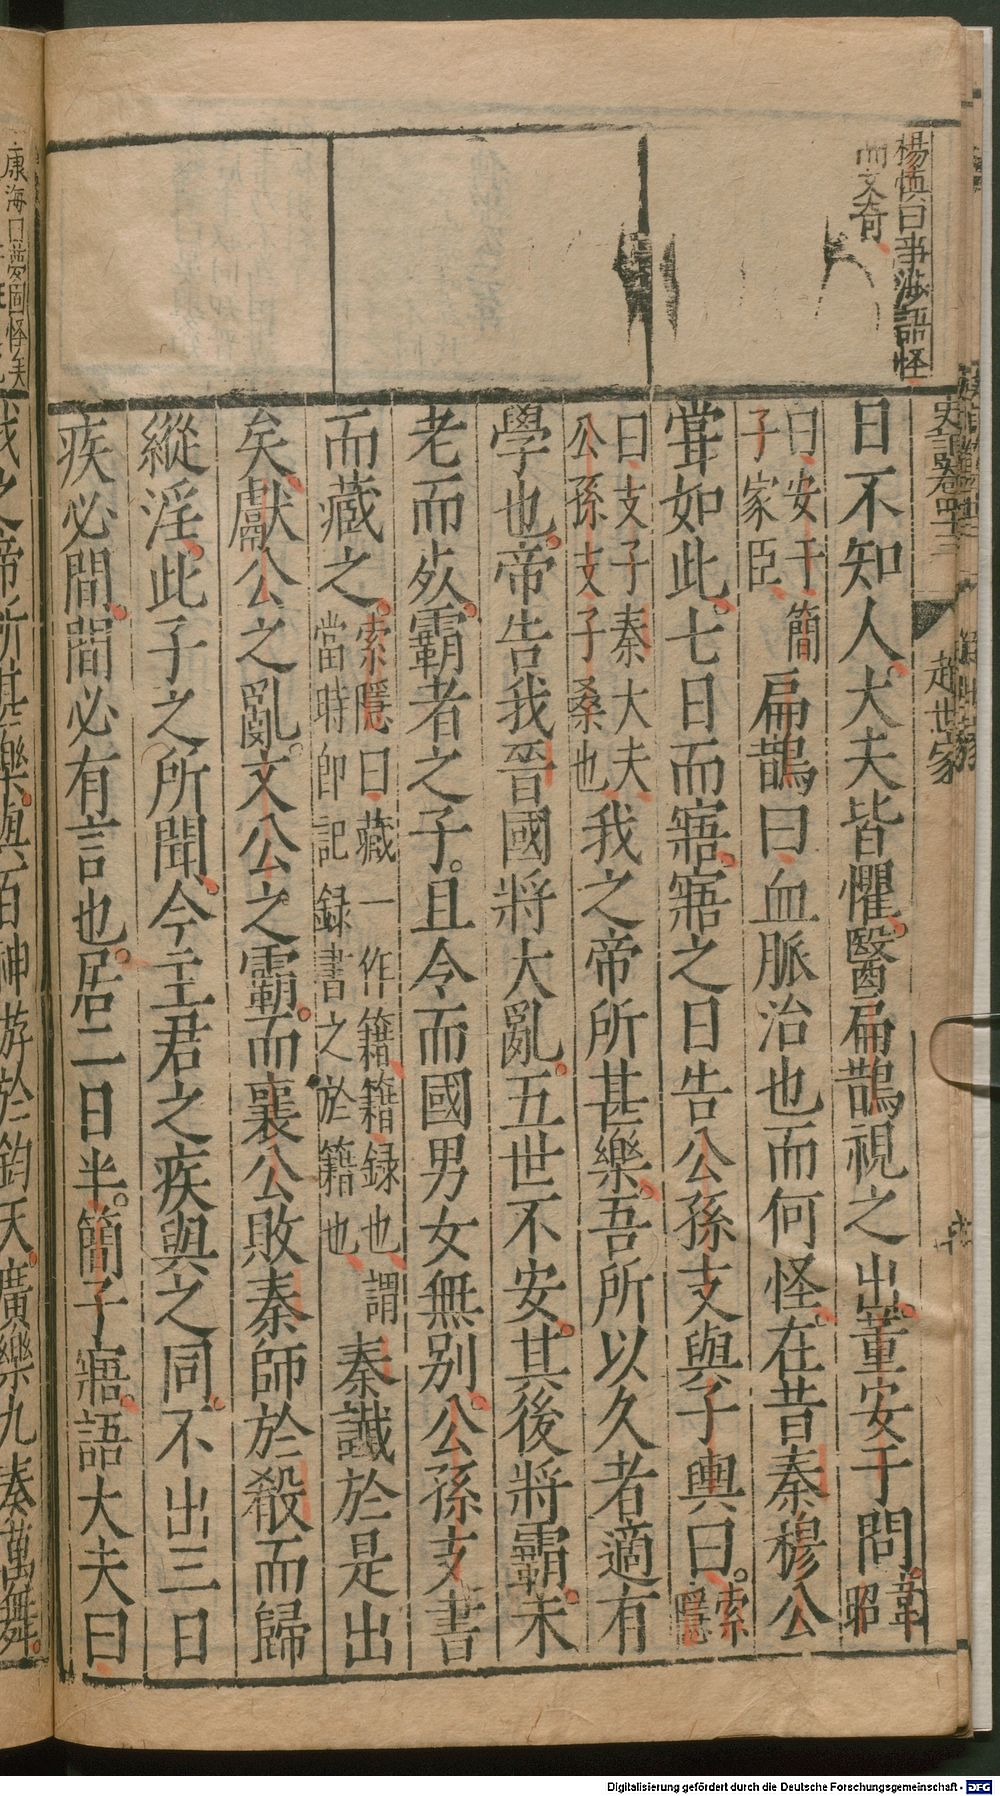 楊慎曰事涉語怪
而文奇
史記卷四十三
趙世家
日不知人大夫皆懼醫扁鵲視之出董安于問韋昭
曰安于簡子家臣扁鵲曰血脈治也而何怪在昔秦穆公
甞如此七日而寤寤之日告公孫支與子輿曰索隱
曰支子秦大夫公孫支子桑也我之帝所甚樂吾所以久者適有
學也帝告我晉國將大亂五世不安其後將霸未
老而死霸者之子且令而國男女無別公孫支書
而藏之索隱曰藏一作籍籍録也謂當時即記録書之於籍也秦讖於是出
矣獻公之亂文公之霸而襄公敗秦師於殽而歸
縱淫此子之所聞今主君之疾與之同不出三日
疾必間間必有言也居二日半簡子寤語大夫曰
康海曰夢圖怪矣
我之帝所甚樂與百神游於鈞天廣樂九奏萬舞
Digitalisierung gefördert durch die Deutsche Forschungsgemeinschaft - DFG